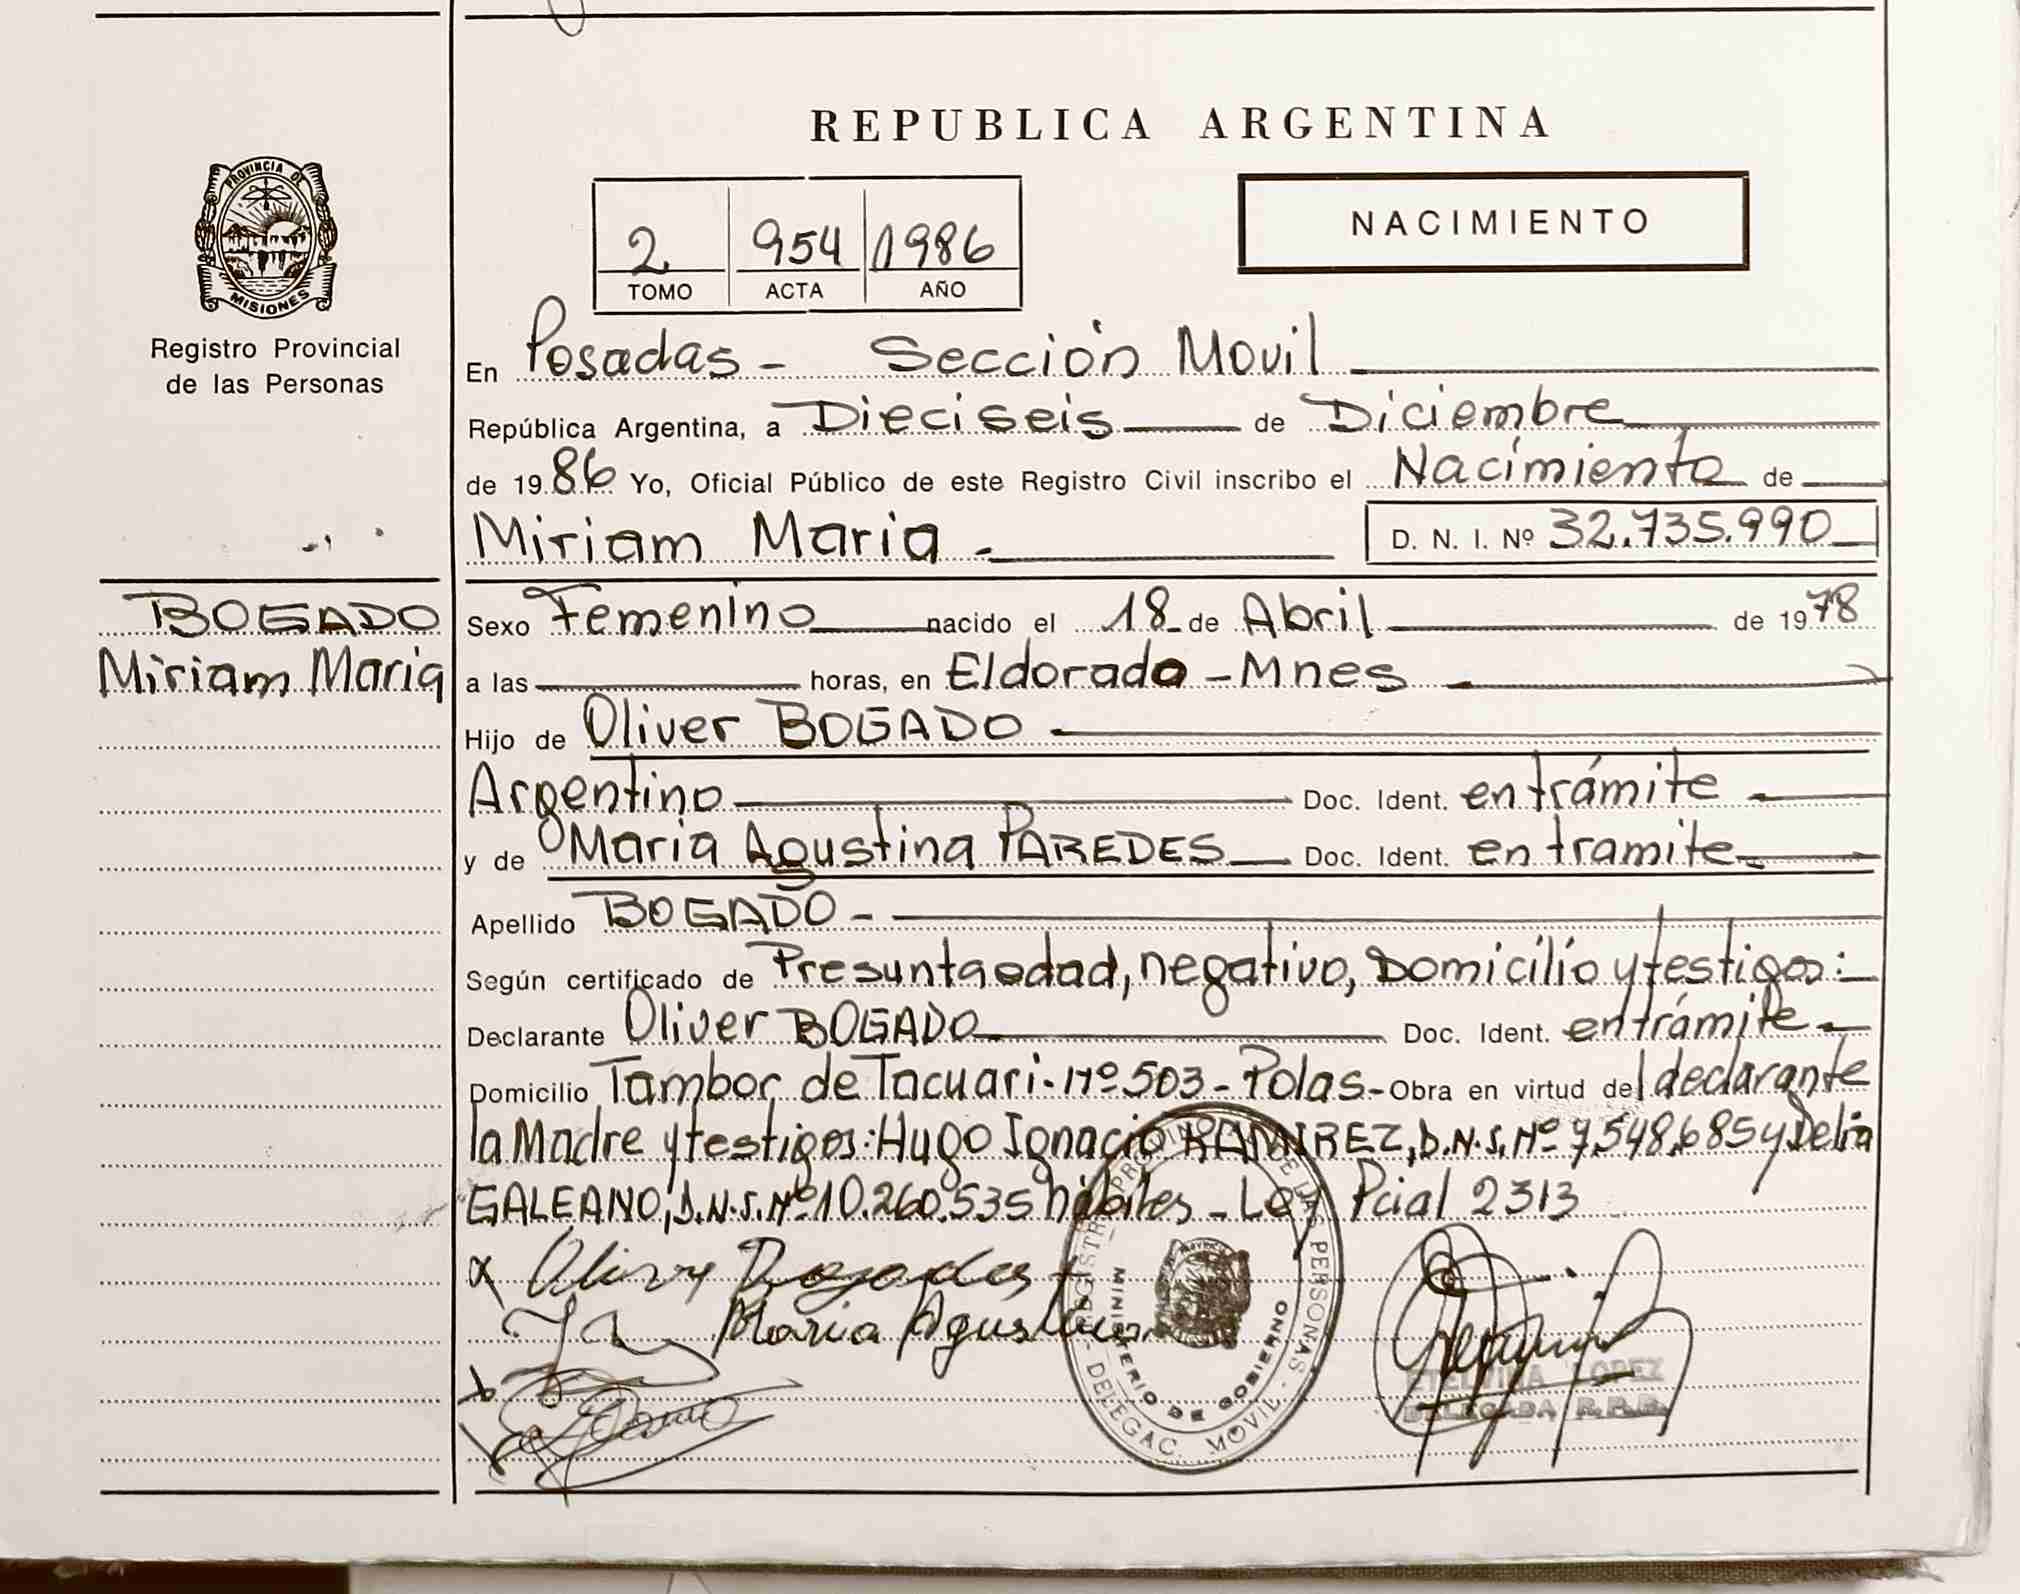 REPUBLICA ARGENTINA
PROVINCIA DE
MISIONES
Registro Provincial
de las Personas
2 954 1986
TOMO ACTA AÑO
NACIMIENTO
En Posadas - Sección Movil
República Argentina, a Dieciseis de Diciembre
de 1986 Yo, Oficial Público de este Registro Civil inscribo el Nacimiento de
Miriam Maria - D. N. I. Nº 32.735.990
BOGADO
Miriam Maria
Sexo Femenino nacido el 18 de Abril de 1978
a las horas, en Eldorado - Mnes
Hijo de Oliver BOGADO
Argentino Doc. Ident. en trámite
y de Maria Agustina PAREDES Doc. Ident. en tramite
Apellido BOGADO -
Según certificado de Presunta edad, negativo, Domicilio y testigos:
Declarante Oliver BOGADO Doc. Ident. en trámite
Domicilio Tambor de Tacuari - Nº 503 - Pdas - Obra en virtud del declarante
la Madre y testigos: Hugo Ignacio RAMIREZ, D.N.I. Nº 7.548.685 y Delia
GALEANO, D.N.I. Nº 10.260.535 hábiles - Ley Pcial 2313
Maria Agustina
REGISTRO PROVINCIAL DE LAS PERSONAS - DELEGAC. MOVIL -
MINISTERIO DE GOBIERNO
ETELVINA LOPEZ
DELEGADA R.P.P.